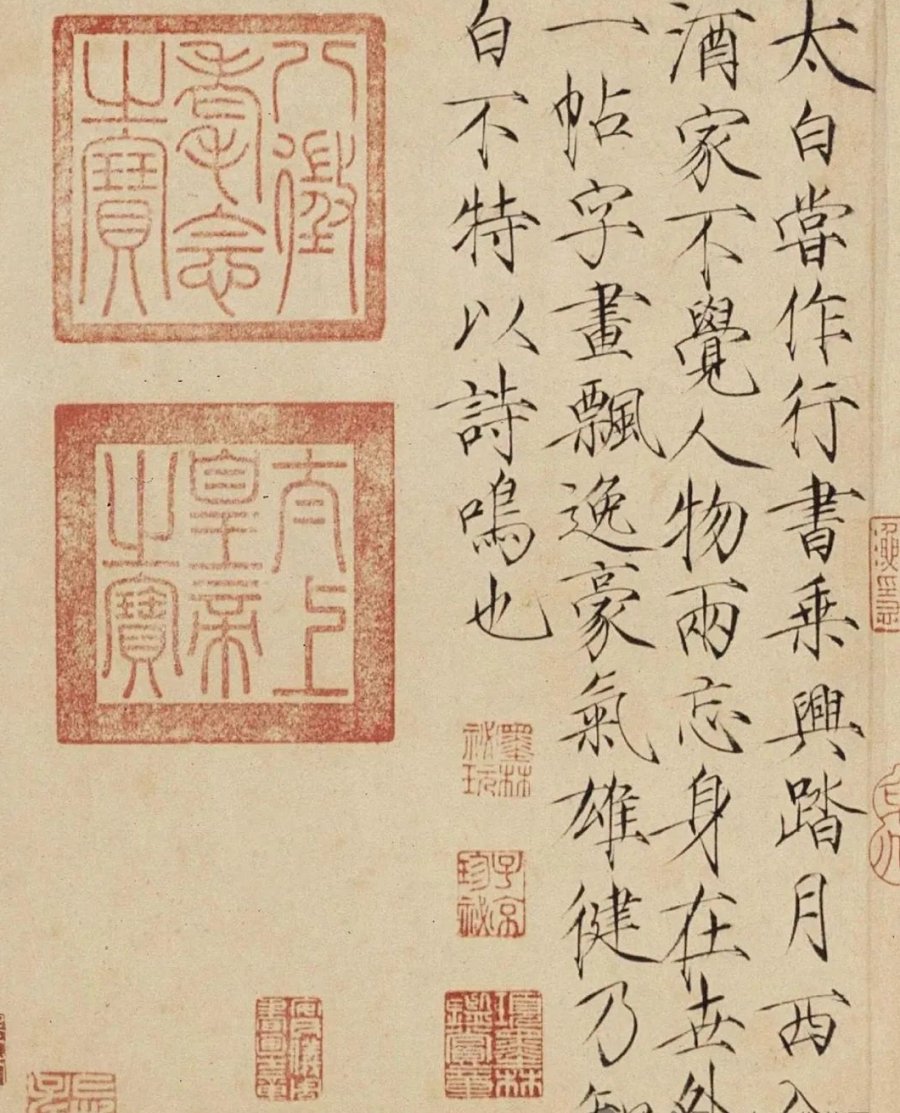 太白嘗作行書乗興踏月西入
酒家不覺人物兩忘身在世外
一帖字畫飄逸豪氣雄徤乃知
白不特以詩鳴也
墨林祕玩
子京珍祕
項墨林鑑賞章
安儀周家珍
八徵耄念之寶
太上皇帝之寶